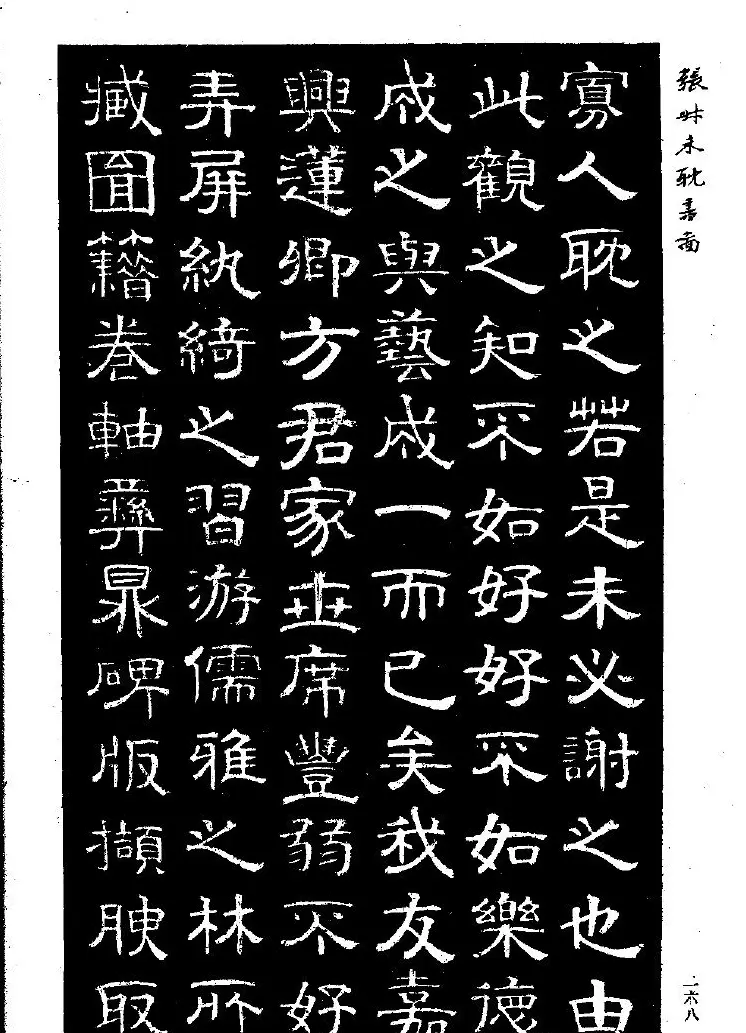 張叔未耽書圖
寡人耽之若是未必謝之也由
此觀之知不如好好不如樂德
成之與藝成一而已矣我友嘉
興蓮卿方君家世席豐弱不好
弄屏紈綺之習游儒雅之林所
藏圖籍卷軸彝鼎碑版擷腴取
二六八